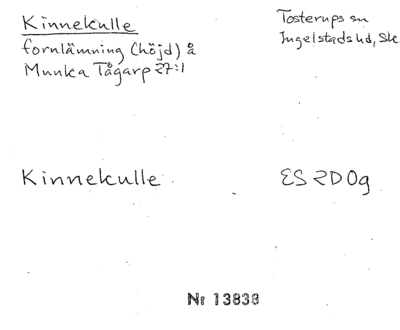 Kinnekulle
fornlämning (höjd) å
Munka Tågarp 27:1
Tosterups sn
Ingelstads hd, Sk
Kinnekulle
ES 2D0g
Nr 13838